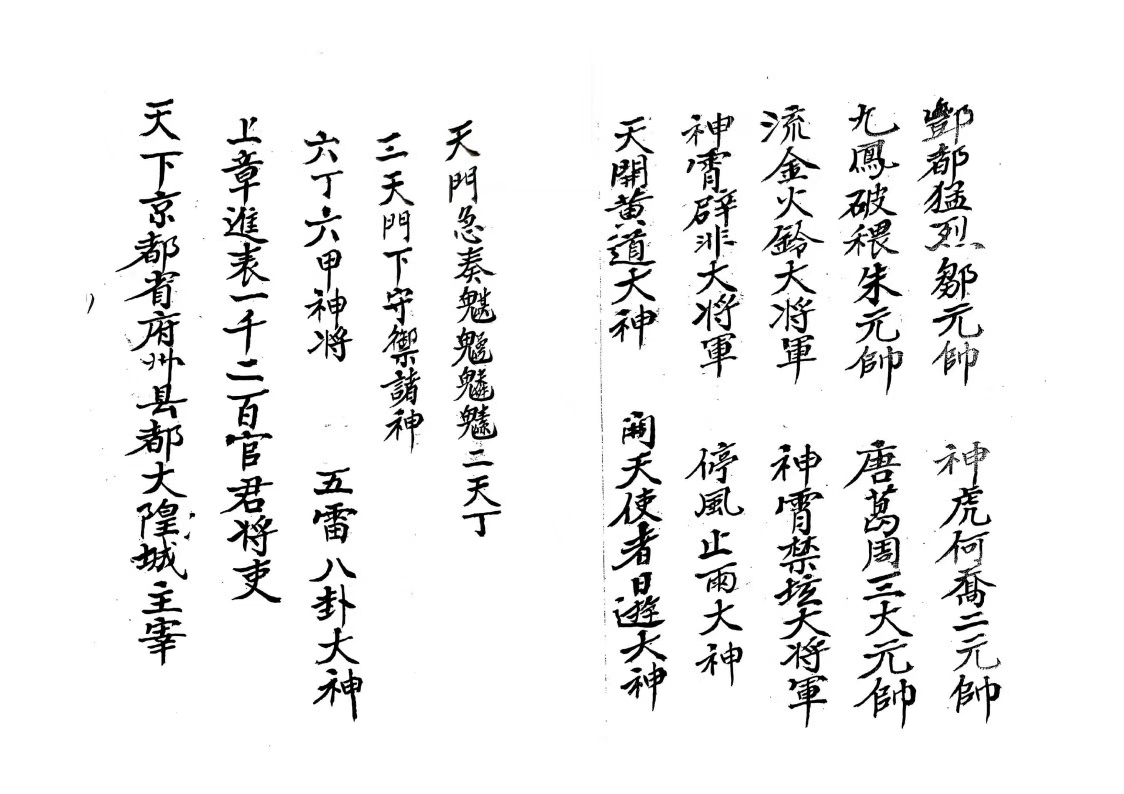 酆都猛烈鄒元帥　神虎何喬二元帥
九鳳破穢朱元帥　唐葛周三大元帥
流金火鈴大将軍　神霄禁壇大将軍
神霄辟非大将軍　停風止雨大神
天開黃道大神　開天使者日遊大神
天門急奏二天丁
三天門下守禦諸神
六丁六甲神将　五雷八卦大神
上章進表一千二百官君将吏
天下京都省府州县都大隍城主宰